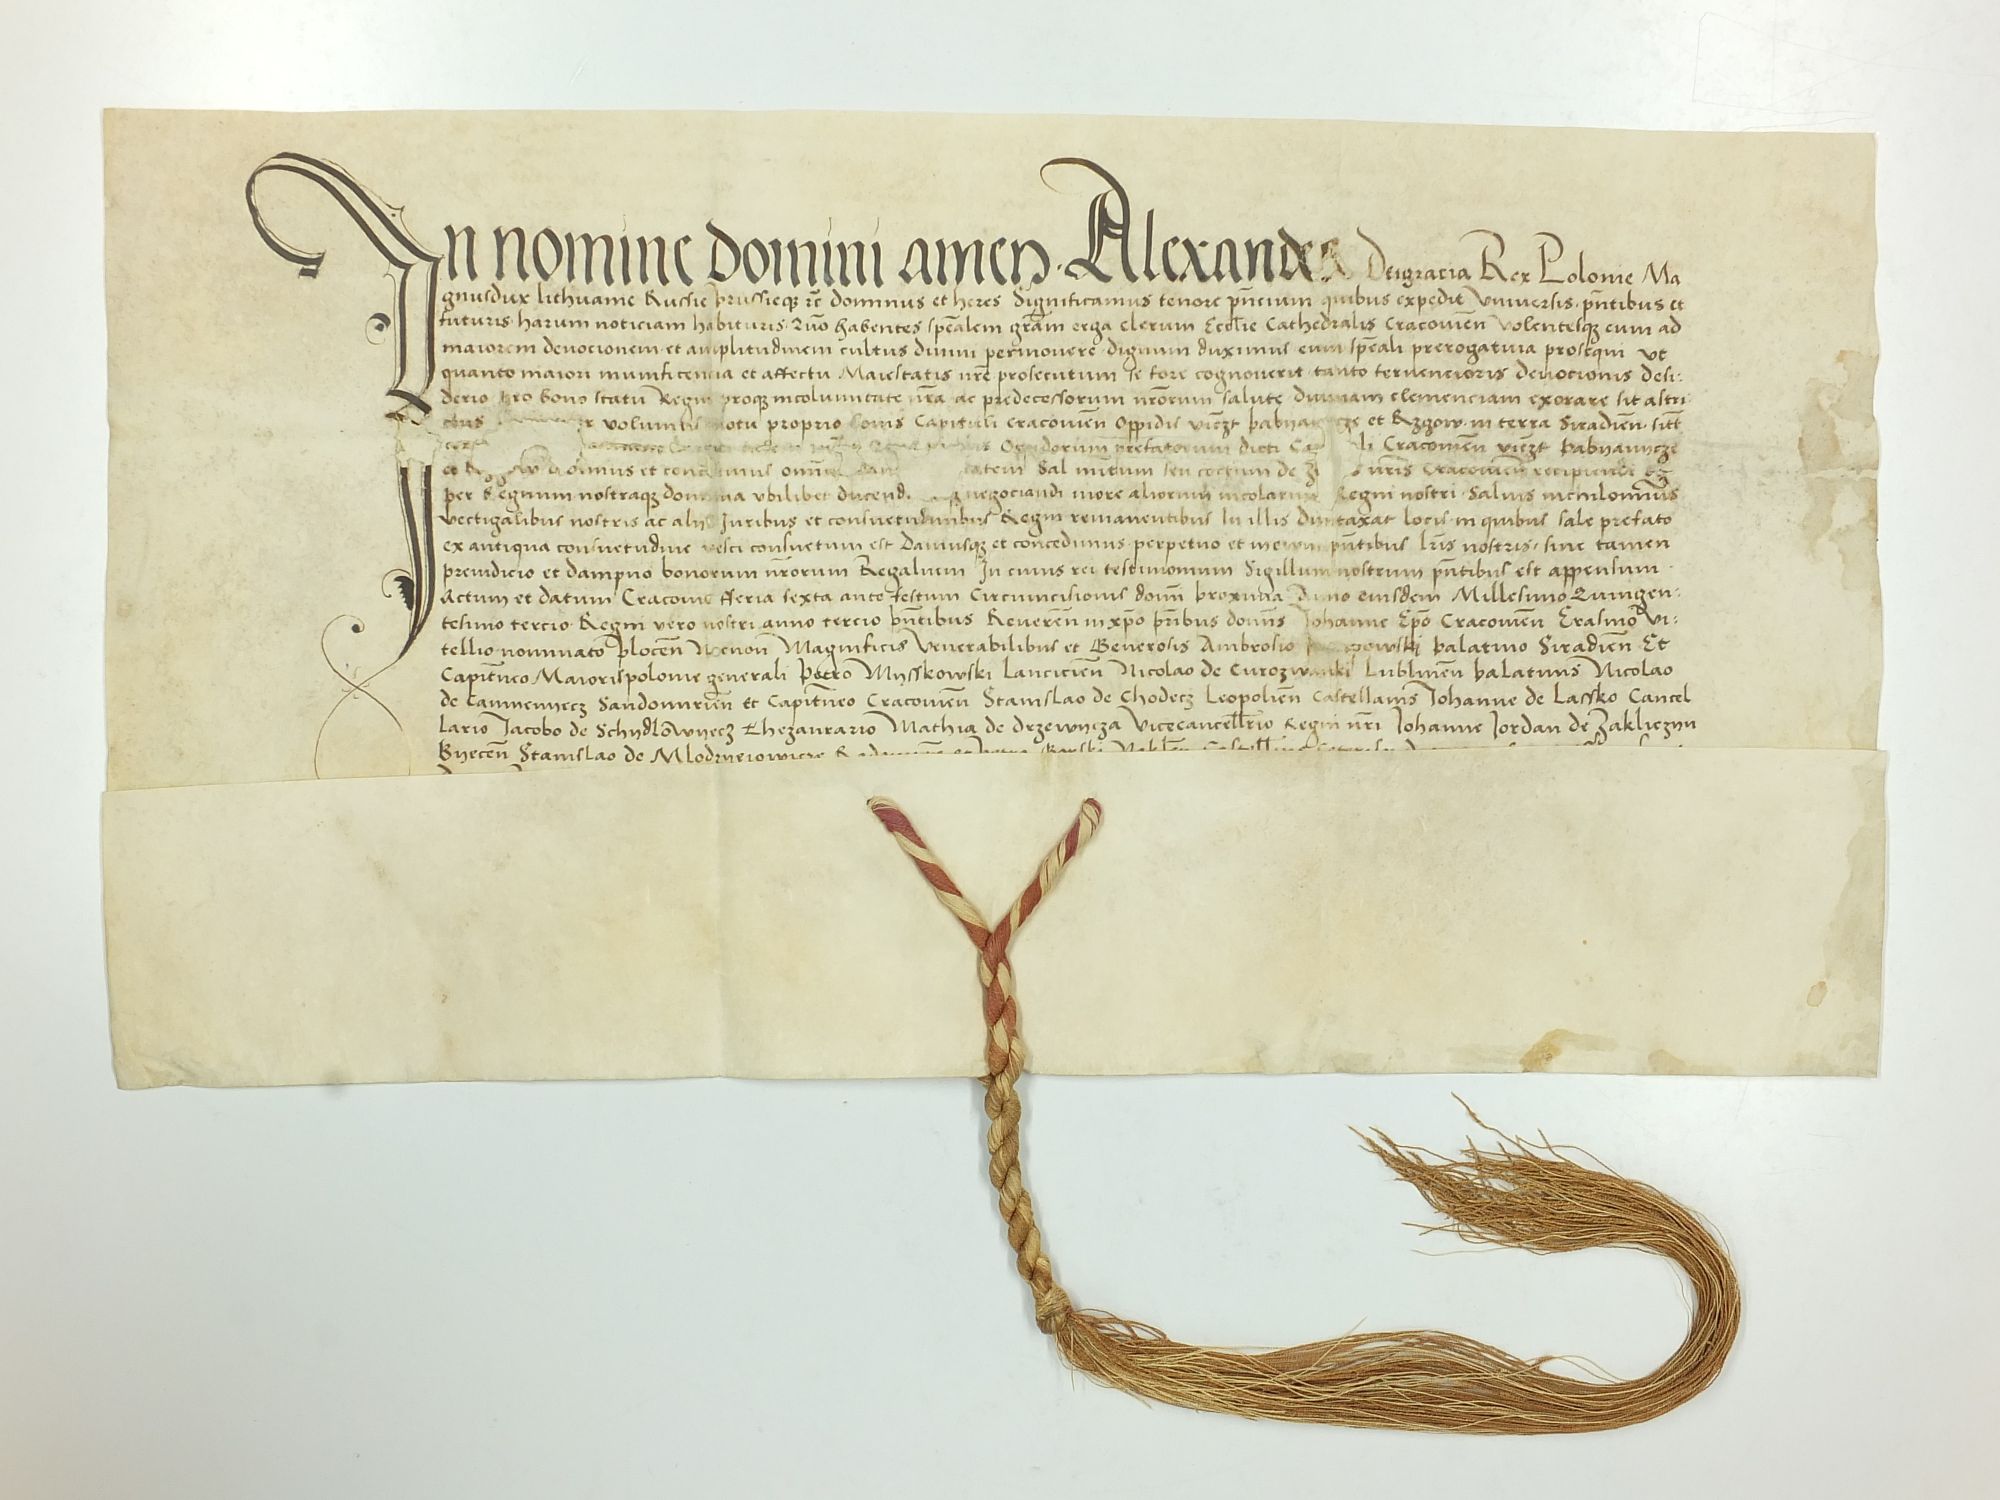 In nomine domini amen. Alexander Dei gracia Rex Polonie Ma
gnusdux lithuanie Russie prussieq; rc̄ dominus et heres Significamus tenore pn̄cium quibus expedit Vniversis pn̄tibus et
futuris harum noticiam habituris. Quō habentes spēalem grām erga clerum Ecclīe Cathedralis Cracovien̄ Volentesq; eum ad
maiorem devocionem et amplitudinem cultus divini permovere dignum duximus eum spēali prerogativa prosequi Vt
quanto maiori munificencia et affectu Maiestatis nr̄e prosecutum se fore cognoverit tanto fervencioris devocionis desi:
derio pro bono statu Regni proq; incolumitate nr̄a ac predecessorum nr̄orum salute divinam clemenciam exorare sit astri
ctus volumus motu proprio Capituli Cracovien̄ Oppidis vicz̄t et Rzgow in terra Siradien̄ sitt̄
Opidorum prefatorum dicti Cracovien̄ vicz̄t pabyanycze
et damus et omn sal nr̄um seu coctum de Cracovien̄ recipiendi
per Regnum nostraq; dominia vbilibet ducend negociandi more aliorum incolarum Regni nostri. Salvis nichilominus
vectigalibus nostris ac alijs Juribus et consuetudinibus Regni remanentibus In illis duntaxat locis in quibus sale prefato
ex antiqua consuetudine vesci consuetum est Damusq; et concedimus perpetuo et in evum pn̄tibus lr̄is nostris, sine tamen
preiudicio et dampno bonorum nr̄orum Regalium In cuius rei testimonium Sigillum nostrum pn̄tibus est appensum.
Actum et datum Cracovie fferia sexta ante festum Circumcisionis domī proxima Anno eiusdem Millesimo Quingen:
tesimo tercio Regni vero nostri anno tercio pn̄tibus Reveren̄ in xp̄o pr̄ibus domīs Johanne Ep̄o Cracovien̄ Erasmo Vi:
tellio nominato plocen̄ Necnon̄ Magnificis Venerabilibus et Generosis Ambrosio palatino Siradien̄ Et
Capit̄neo Maiorispolonie generali petro Mysskowski Lancicien̄ Nicolao de Curozwanki Lublinen̄ palatinis Nicolao
de Camnemecz Sandomirien̄ Et Capit̄neo Cracovien̄ Stanislao de Chodecz Leopolien̄ Castellanis Johanne de Lassko Cancel
lario Jacobo de Schydlowyecz Thezaurario Mathia de Drzewycza Vicecancell̄rio Regni nr̄i Johanne Jordan de Zakliczyn
Byecen̄ Stanislao de Mlodzyeiowicze